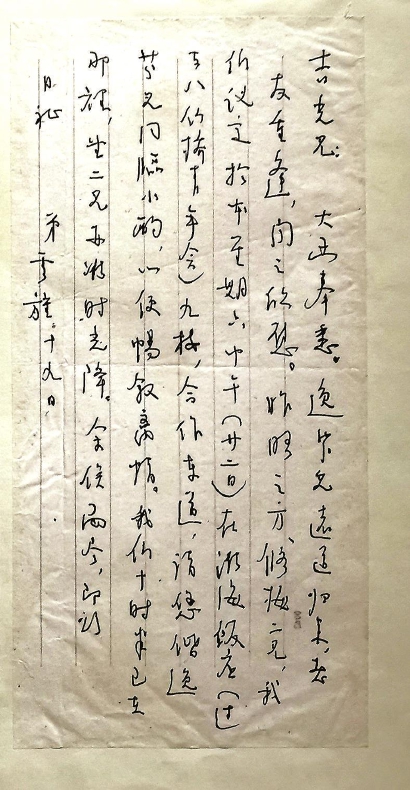 吉光兄：大函奉悉。逸芬兄远道归来，老
友重逢，闻之欣慰。昨晤之方、修梅二兄，我
们议定于本星期六中午（廿二日）在湖海饭店（过
去八仙桥青年会）九楼，合作东道，请您偕逸
芬兄同临小酌，以便畅叙离情。我们十时半已在
那裡，坐二兄亦准时光降。余候面会，即颂
日祉
弟 十九日